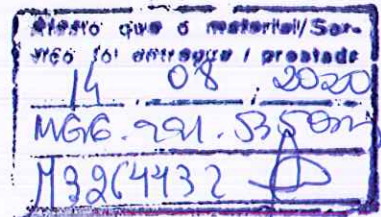 Atesto que o material/Ser-
viço foi entregue / prestado
14 . 08 . 2020
M3264432